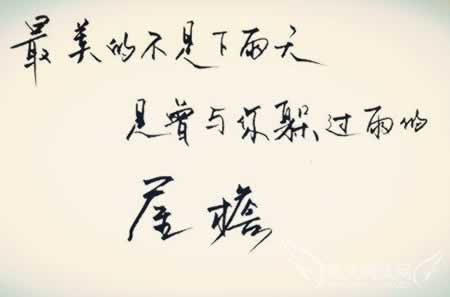 最美的不是下雨天
是曾与你躲过雨的
屋檐